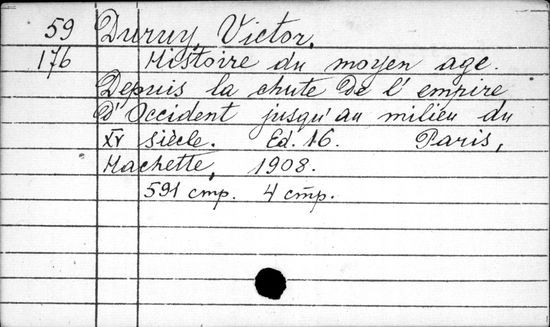 59 Duruy, Victor.
176 Histoire du moyen age.
Depuis la chute de l'empire
d'Occident jusqu'au milieu du
XV siècle. Ed. 16. Paris,
Hachette, 1908.
591 cmp. 4 cmp.